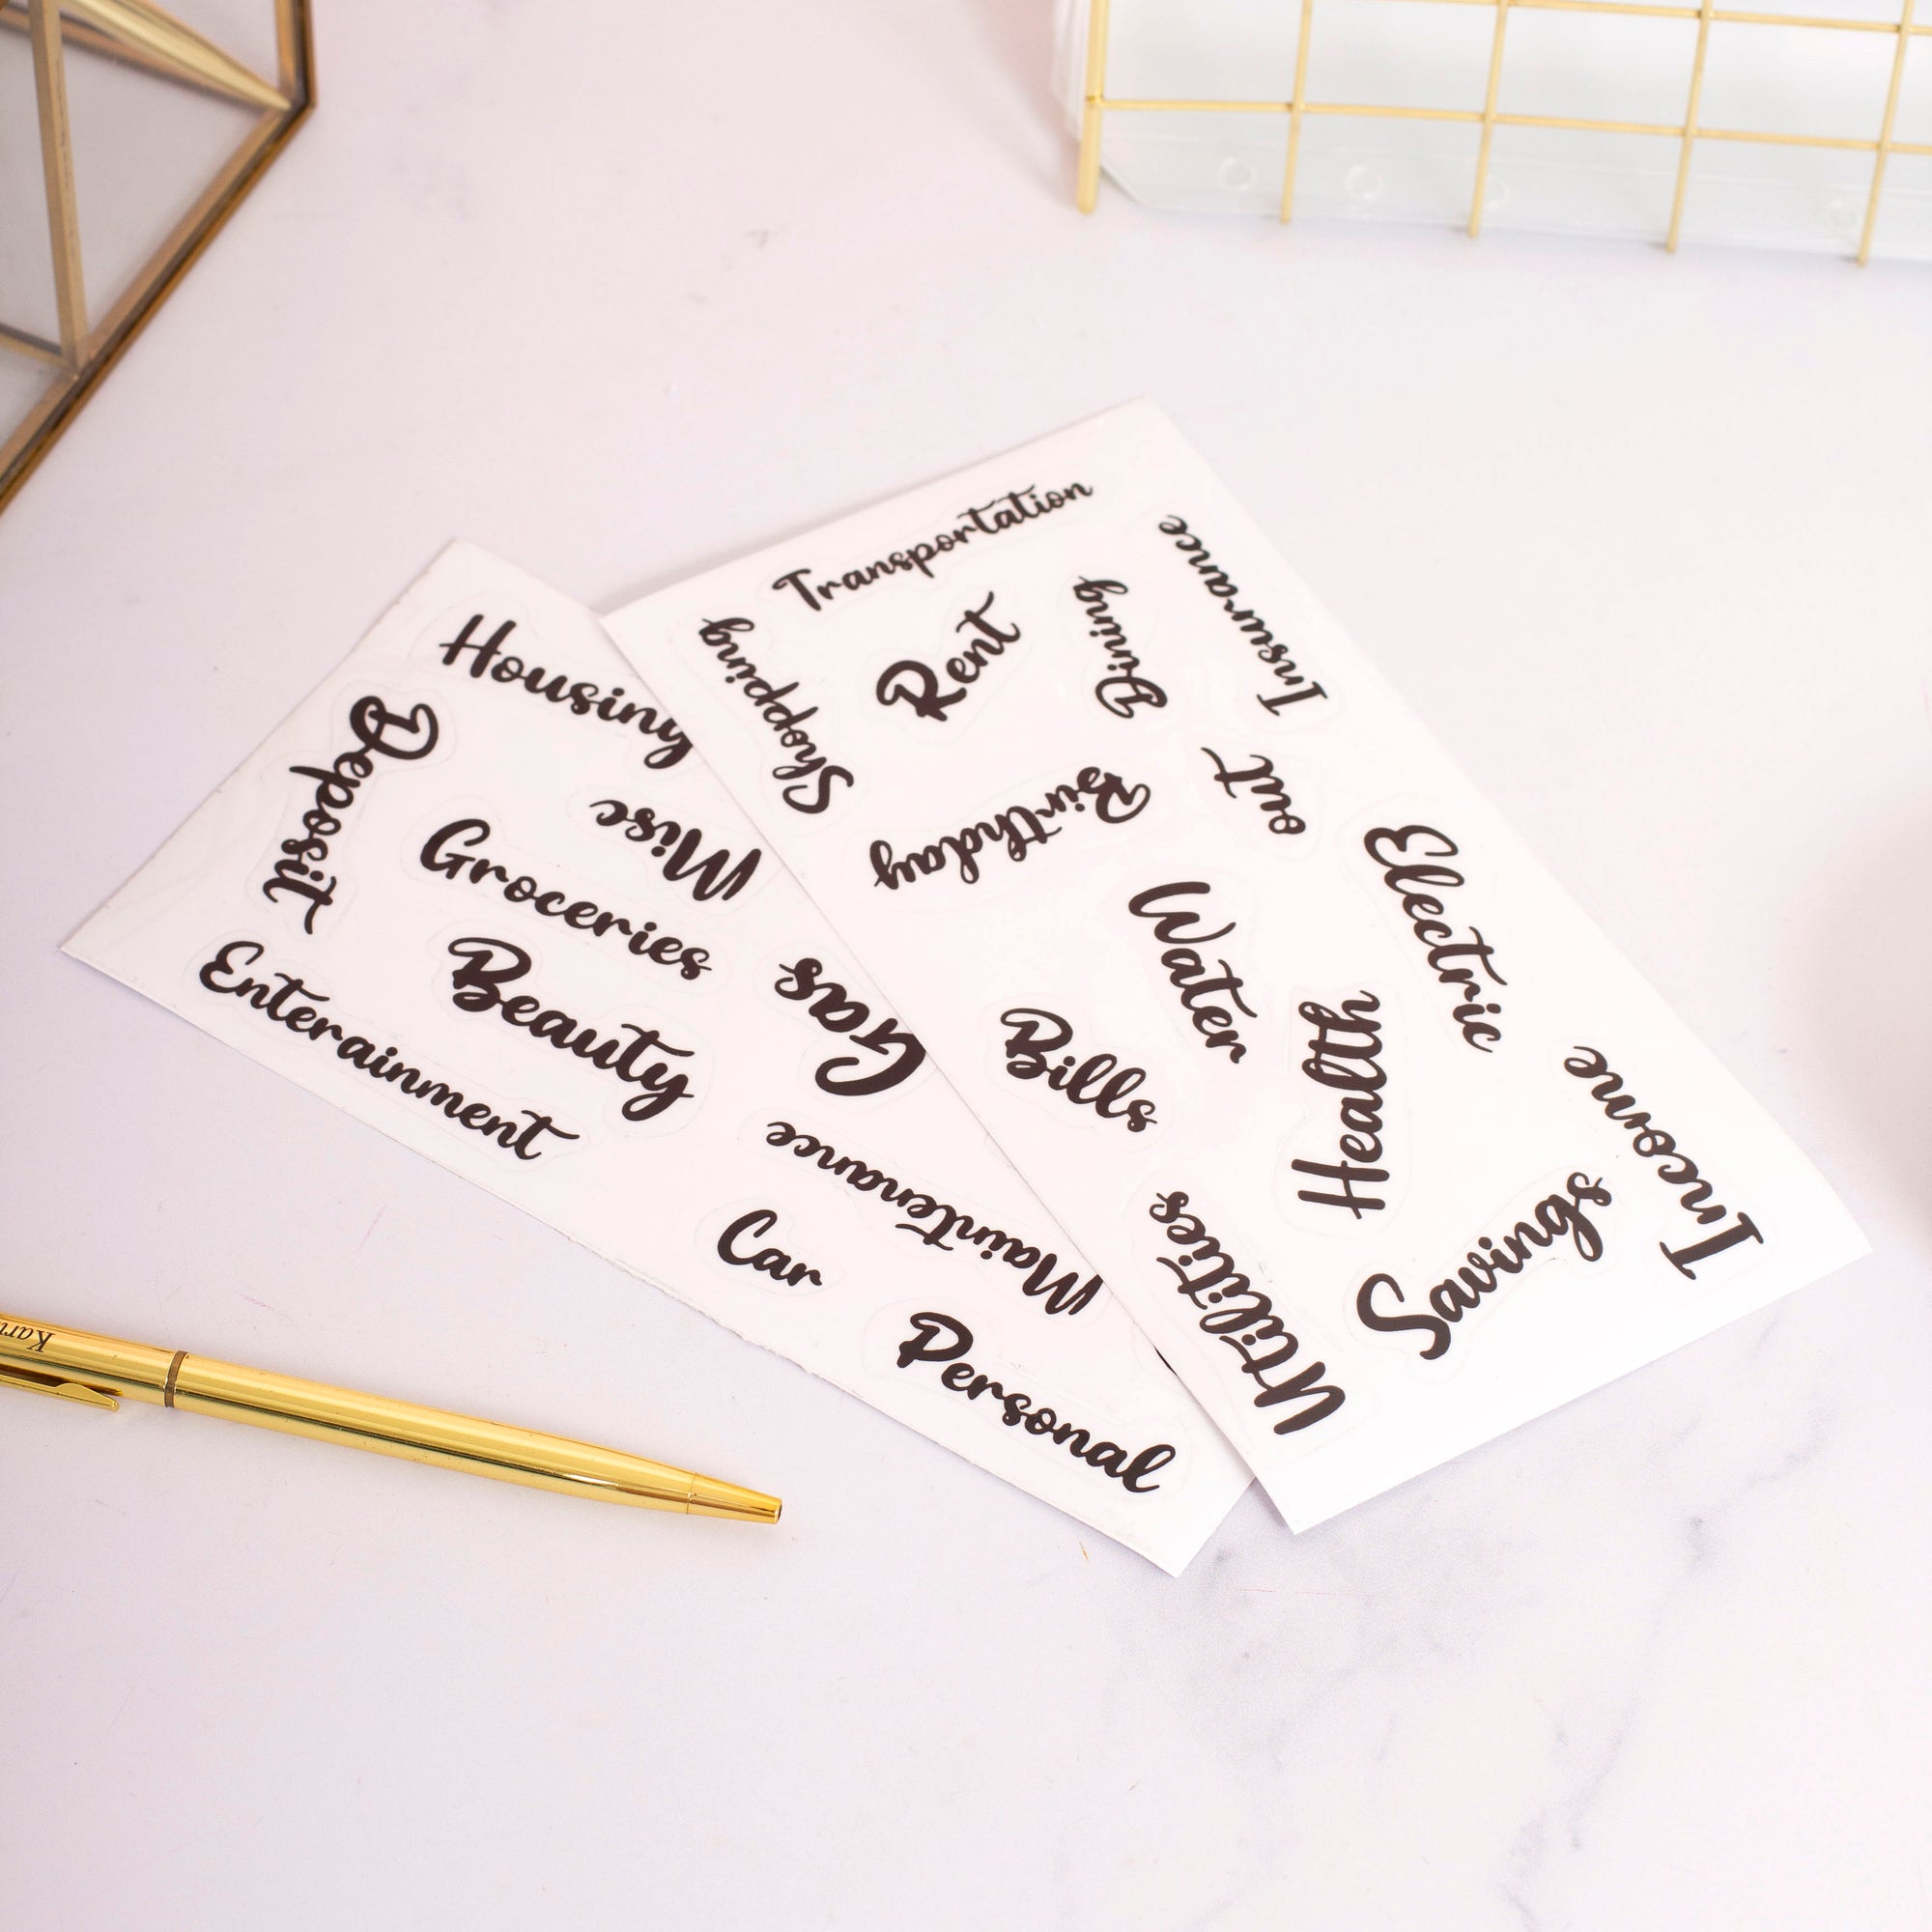 Housing
Deposit
Misc
Groceries
Beauty
Gas
Enterainment
Maintenance
Car
Personal
Transportation
Insurance
Shopping
Rent
Dining
out
Birthday
Electric
Water
Bills
Health
Income
Utilities
Savings